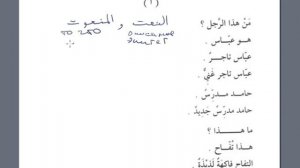 (١)
مَنْ هذا الرَّجل ؟
النعت و المنعوت
هو عبّاس .
описание
эпитет
عبّاس تاجرٌ .
عبّاس تاجر غنيٌّ .
حامد مدرّسٌ .
حامد مدرّسٌ جديدٌ .
ما هــذا ؟
هذا تُفّاح .
التفاح فاكهةٌ لذيذةٌ .